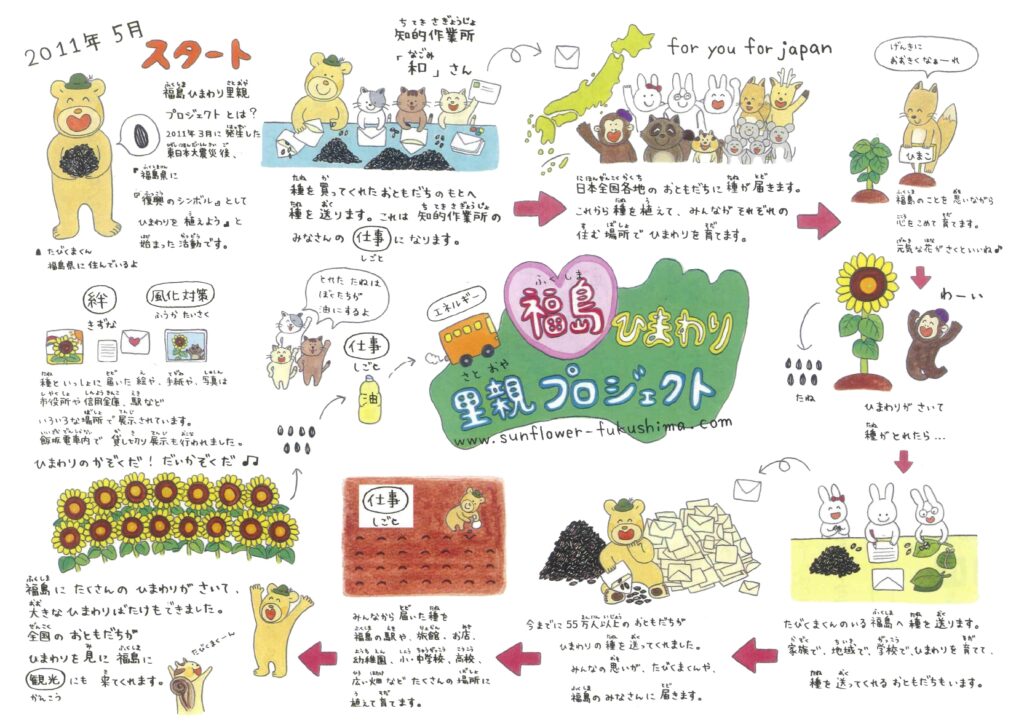 2011年 5月
スタート
福島ひまわり里親
プロジェクトとは？
2011年3月に発生した
東日本大震災後、…
『福島県に
『復興のシンボル』として
ひまわりを植えよう』と
始まった活動です。
たびくまくん
福島県に住んでいるよ
ちてき さぎょうじょ
知的作業所
なごみ
「和」さん
種を買ってくれたおともだちのもとへ
種を送ります。これは知的作業所の
みなさんの 仕事 になります。
しごと
for you for japan
日本全国各地のおともだちに種が届きます。
これから種を植えて、みんながそれぞれの
住む場所でひまわりを育てます。
げんきに
おおきくなぁーれ
ひまこ
福島のことを思いながら
心をこめて育てます。
元気な花がさくといいね♪
わーい
たね
ひまわりがさいて
種がとれたら…
たびくまくんのいる福島へ種を送ります。
家族で、地域で、学校で、ひまわりを育て、
種を送ってくれるおともだちもいます。
今までに55万人以上のおともだちが
ひまわりの種を送ってくれました。
みんなの思いが、たびくまくんや、
福島のみなさんに届きます。
仕事
しごと
みんなから届いた種を
福島の駅や、旅館、お店、
幼稚園、小・中学校、高校、
広い畑などたくさんの場所に
植えて育てます。
福島にたくさんのひまわりがさいて、
大きなひまわりばたけもできました。
全国のおともだちが
ひまわりを見に福島に
観光 にも来てくれます。
かんこう
たびくまくーん
絆
きずな
風化対策
ふうかたいさく
種といっしょに届いた絵や、手紙や、写真は
市役所や信用金庫、駅など
いろいろな場所で展示されています。
飯坂電車内で貸し切り展示も行われました。
ひまわりのかぞくだ！だいかぞくだ♪♫
とれた たねは
ぼくたちが
油にするよ
仕事
しごと
油
エネルギー
ふくしま
福島
ひまわり
さと おや
里親プロジェクト
www.sunflower-fukushima.com